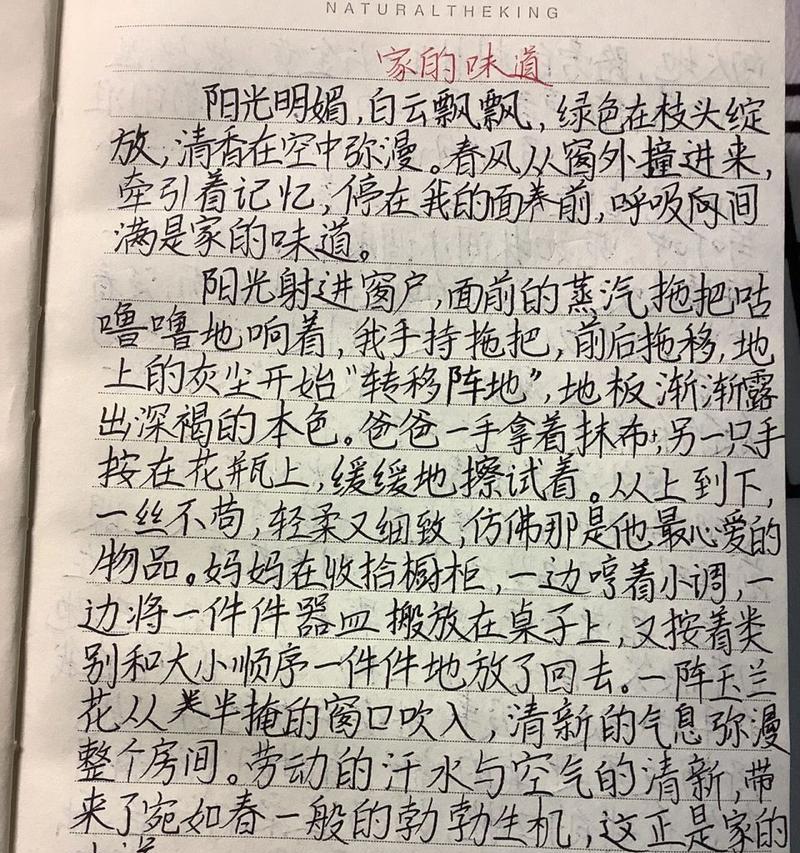 NATURALTHEKING
家的味道
阳光明媚,白云飘飘,绿色在枝头绽
放,清香在空中弥漫。春风从窗外撞进来,
牵引着记忆,停在我的面前,呼吸间
满是家的味道。
阳光射进窗户,面前的蒸汽拖把咕
噜噜地响着,我手持拖把,前后拖移,地
上的灰尘开始“转移阵地”,地板渐渐露
出深褐的本色。爸爸一手拿着抹布,另一只手
按在花瓶上,缓缓地擦试着。从上到下,
一丝不苟,轻柔又细致,仿佛那是他最心爱的
物品。妈妈在收拾橱柜,一边哼着小调,一
边将一件件器皿搬放在桌子上,又按着类
别和大小顺序一件件地放了回去。一阵玉兰
花从半掩的窗口吹入,清新的气息弥漫
整个房间。劳动的汗水与空气的清新,带
来了宛如春一般的勃勃生机,这正是家的